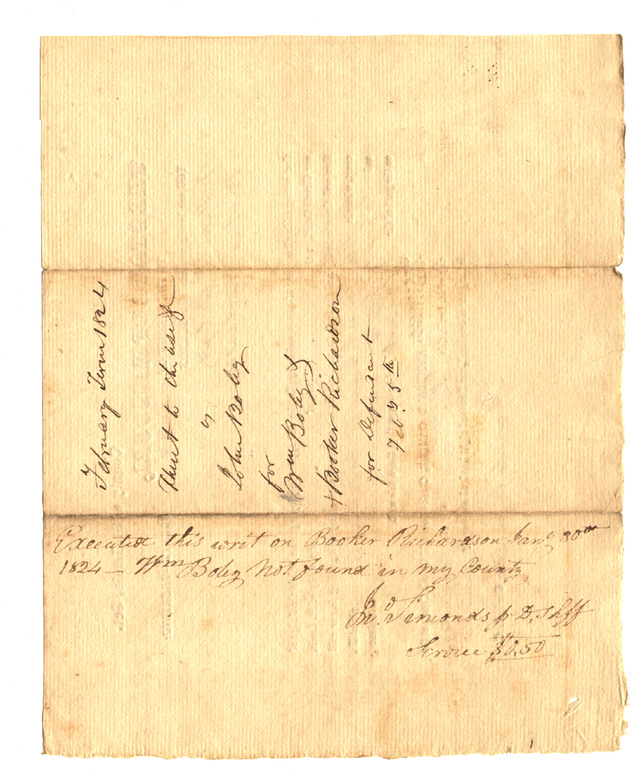 February Term 1824
John Boley
for
Wm Boley &
Booker Richardson
for Defendant
Feby 5th
Executed this writ on Booker Richardson Jany 30th
1824 — Wm Boley Not found in my County
Simonds D. Shff
Service $0,50